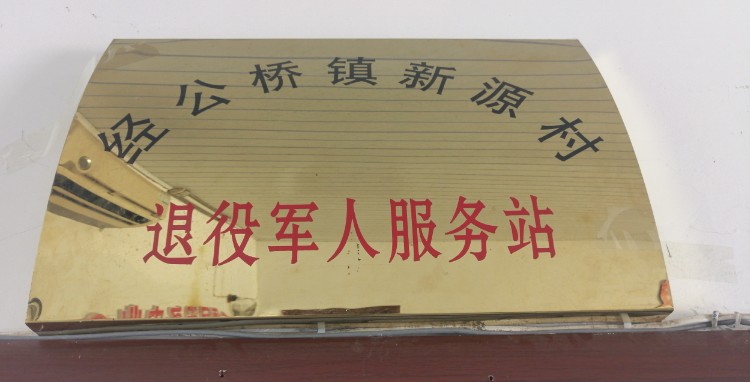 经公桥镇新源村
退役军人服务站